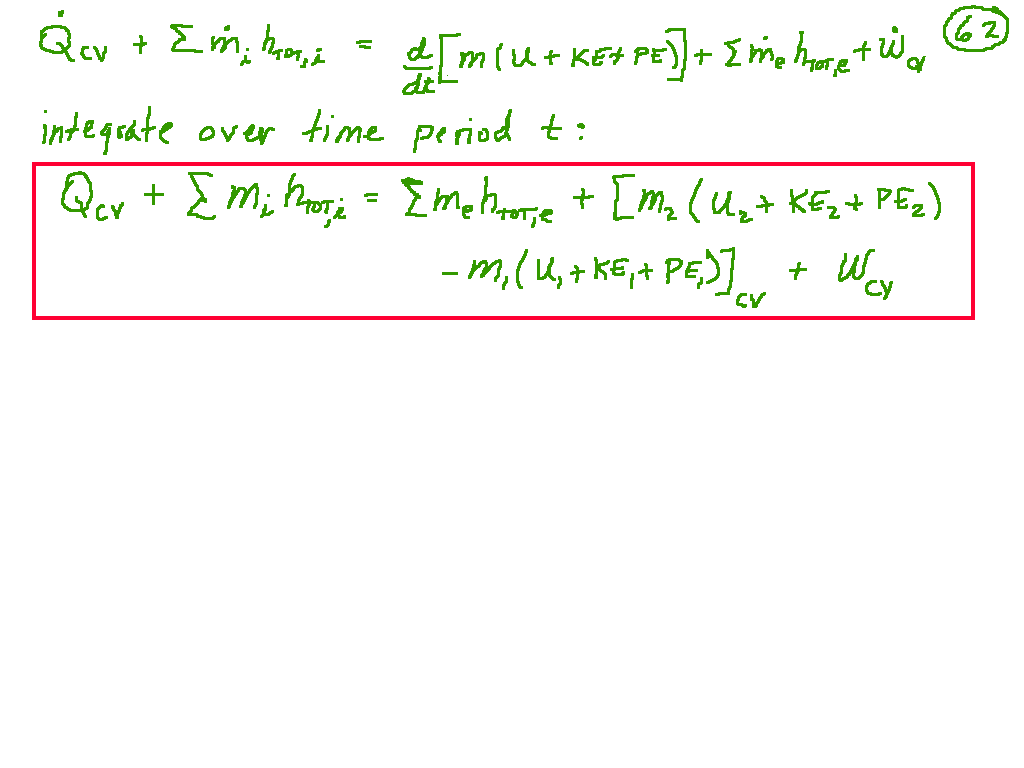 Q̇_cv + Σ ṁ_i h_TOT,i = d/dt [m(u + KE + PE)] + Σ ṁ_e h_TOT,e + Ẇ_cv (62)
integrate over time period t:
Q_cv + Σ m_i h_TOT,i = Σ m_e h_TOT,e + [m_2 (u_2 + KE_2 + PE_2)
- m_1 (u_1 + KE_1 + PE_1)]_cv + W_cv